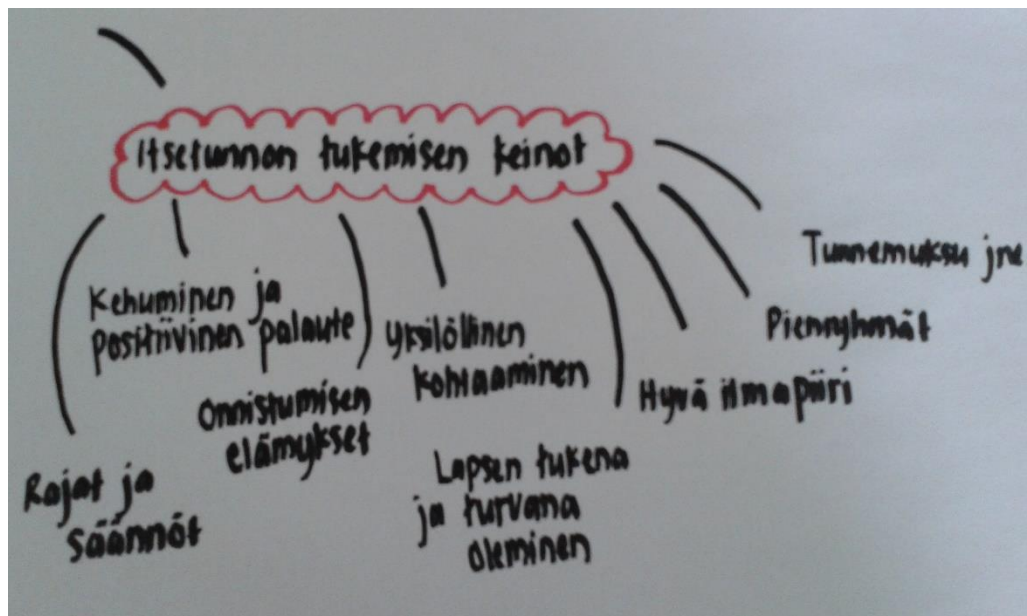 Itsetunnon tukemisen keinot
Kehuminen ja
positiivinen palaute
Onnistumisen
elämykset
Rajat ja
säännöt
Yksilöllinen
kohtaaminen
Lapsen tukena
ja turvana
oleminen
Hyvä ilmapiiri
Pienryhmät
Tunnemuksu jne